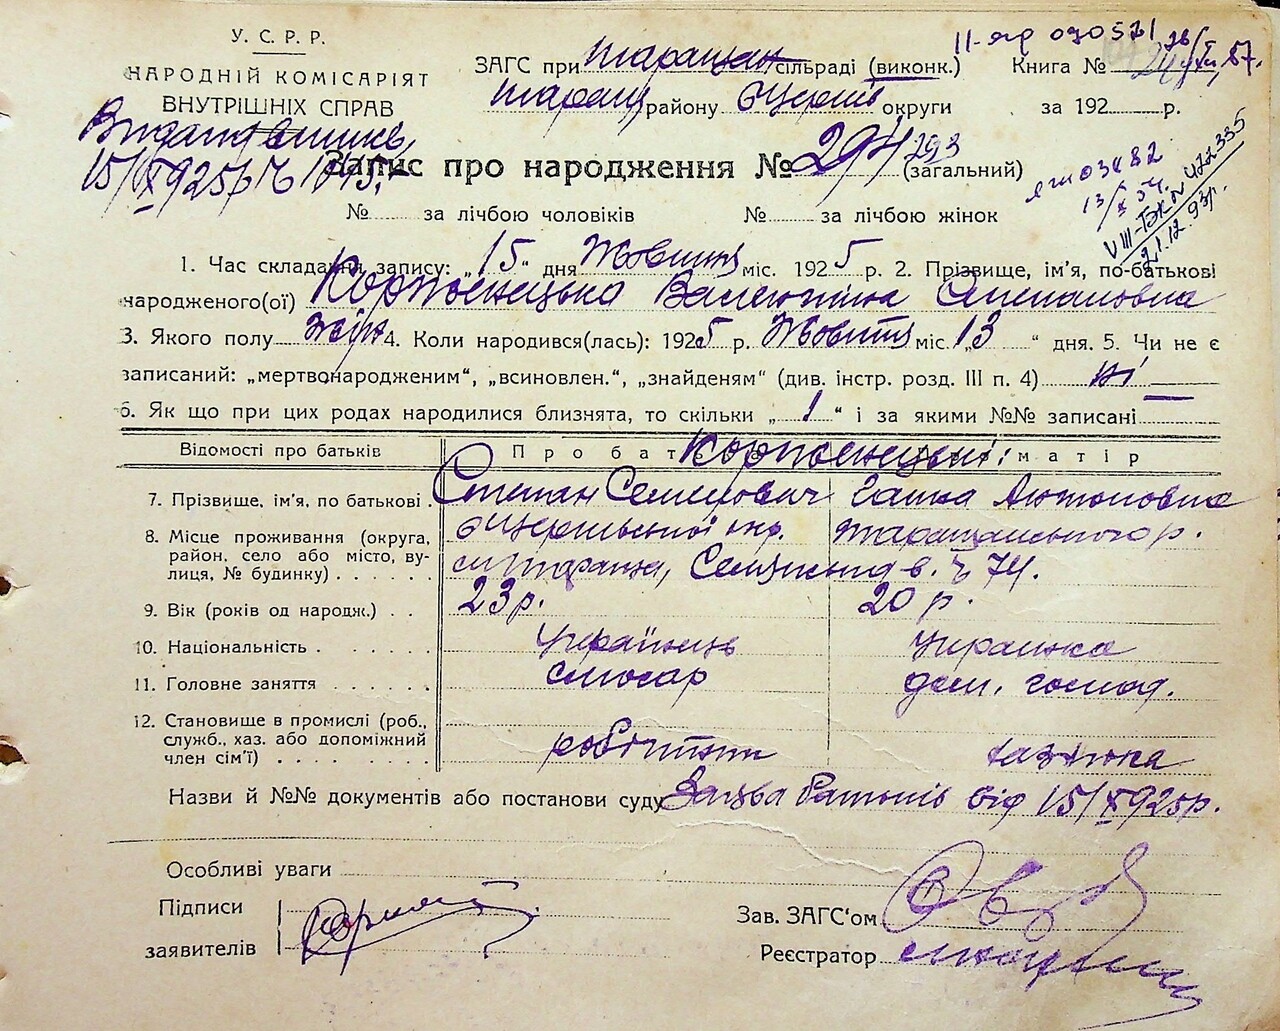 У. С. Р. Р.
НАРОДНІЙ КОМІСАРІЯТ
ВНУТРІШНІХ СПРАВ
15/X 925р
ІІ-яр 090521
ЗАГС при Таращан сільраді (виконк.) Книга №
Таращ району Бцерків округи за 192 р.
Запис про народження № 294 293 (загальний)
13/X 54.
21.12.93р.
№ за лічбою чоловіків № за лічбою жінок
1. Час складання запису: „15“ дня Жовтня міс. 1925 р. 2. Прізвище, ім'я, по-батькові
народженого(ої) Валентина Степановна
3. Якого полу жін 4. Коли народився(лась): 1925 р. Жовтня міс. „13“ дня. 5. Чи не є
записаний: „мертвонародженим“, „всиновлен.“, „знайденям“ (див. інстр. розд. III п. 4) ні
6. Як що при цих родах народилися близнята, то скільки „1“ і за якими №№ записані
Відомості про батьків Про батька матір
7. Прізвище, ім'я, по батькові Степан Семенович Ганна Антоновна
8. Місце проживання (округа, район, село або місто, вулиця, № будинку) Бцерківської окр. Таращанського р.
м Тараща, в. ч 74.
9. Вік (років од народж.) 23р. 20 р.
10. Національність Українець Українка
11. Головне заняття слюсар дом. господ.
12. Становище в промислі (роб., служб., хаз. або допоміжний член сім'ї) робітник хазяйка
Назви й №№ документів або постанови суду Заява батьків від 15/X 925р.
Особливі уваги
Підписи
заявителів
Зав. ЗАГС‘ом
Реєстратор